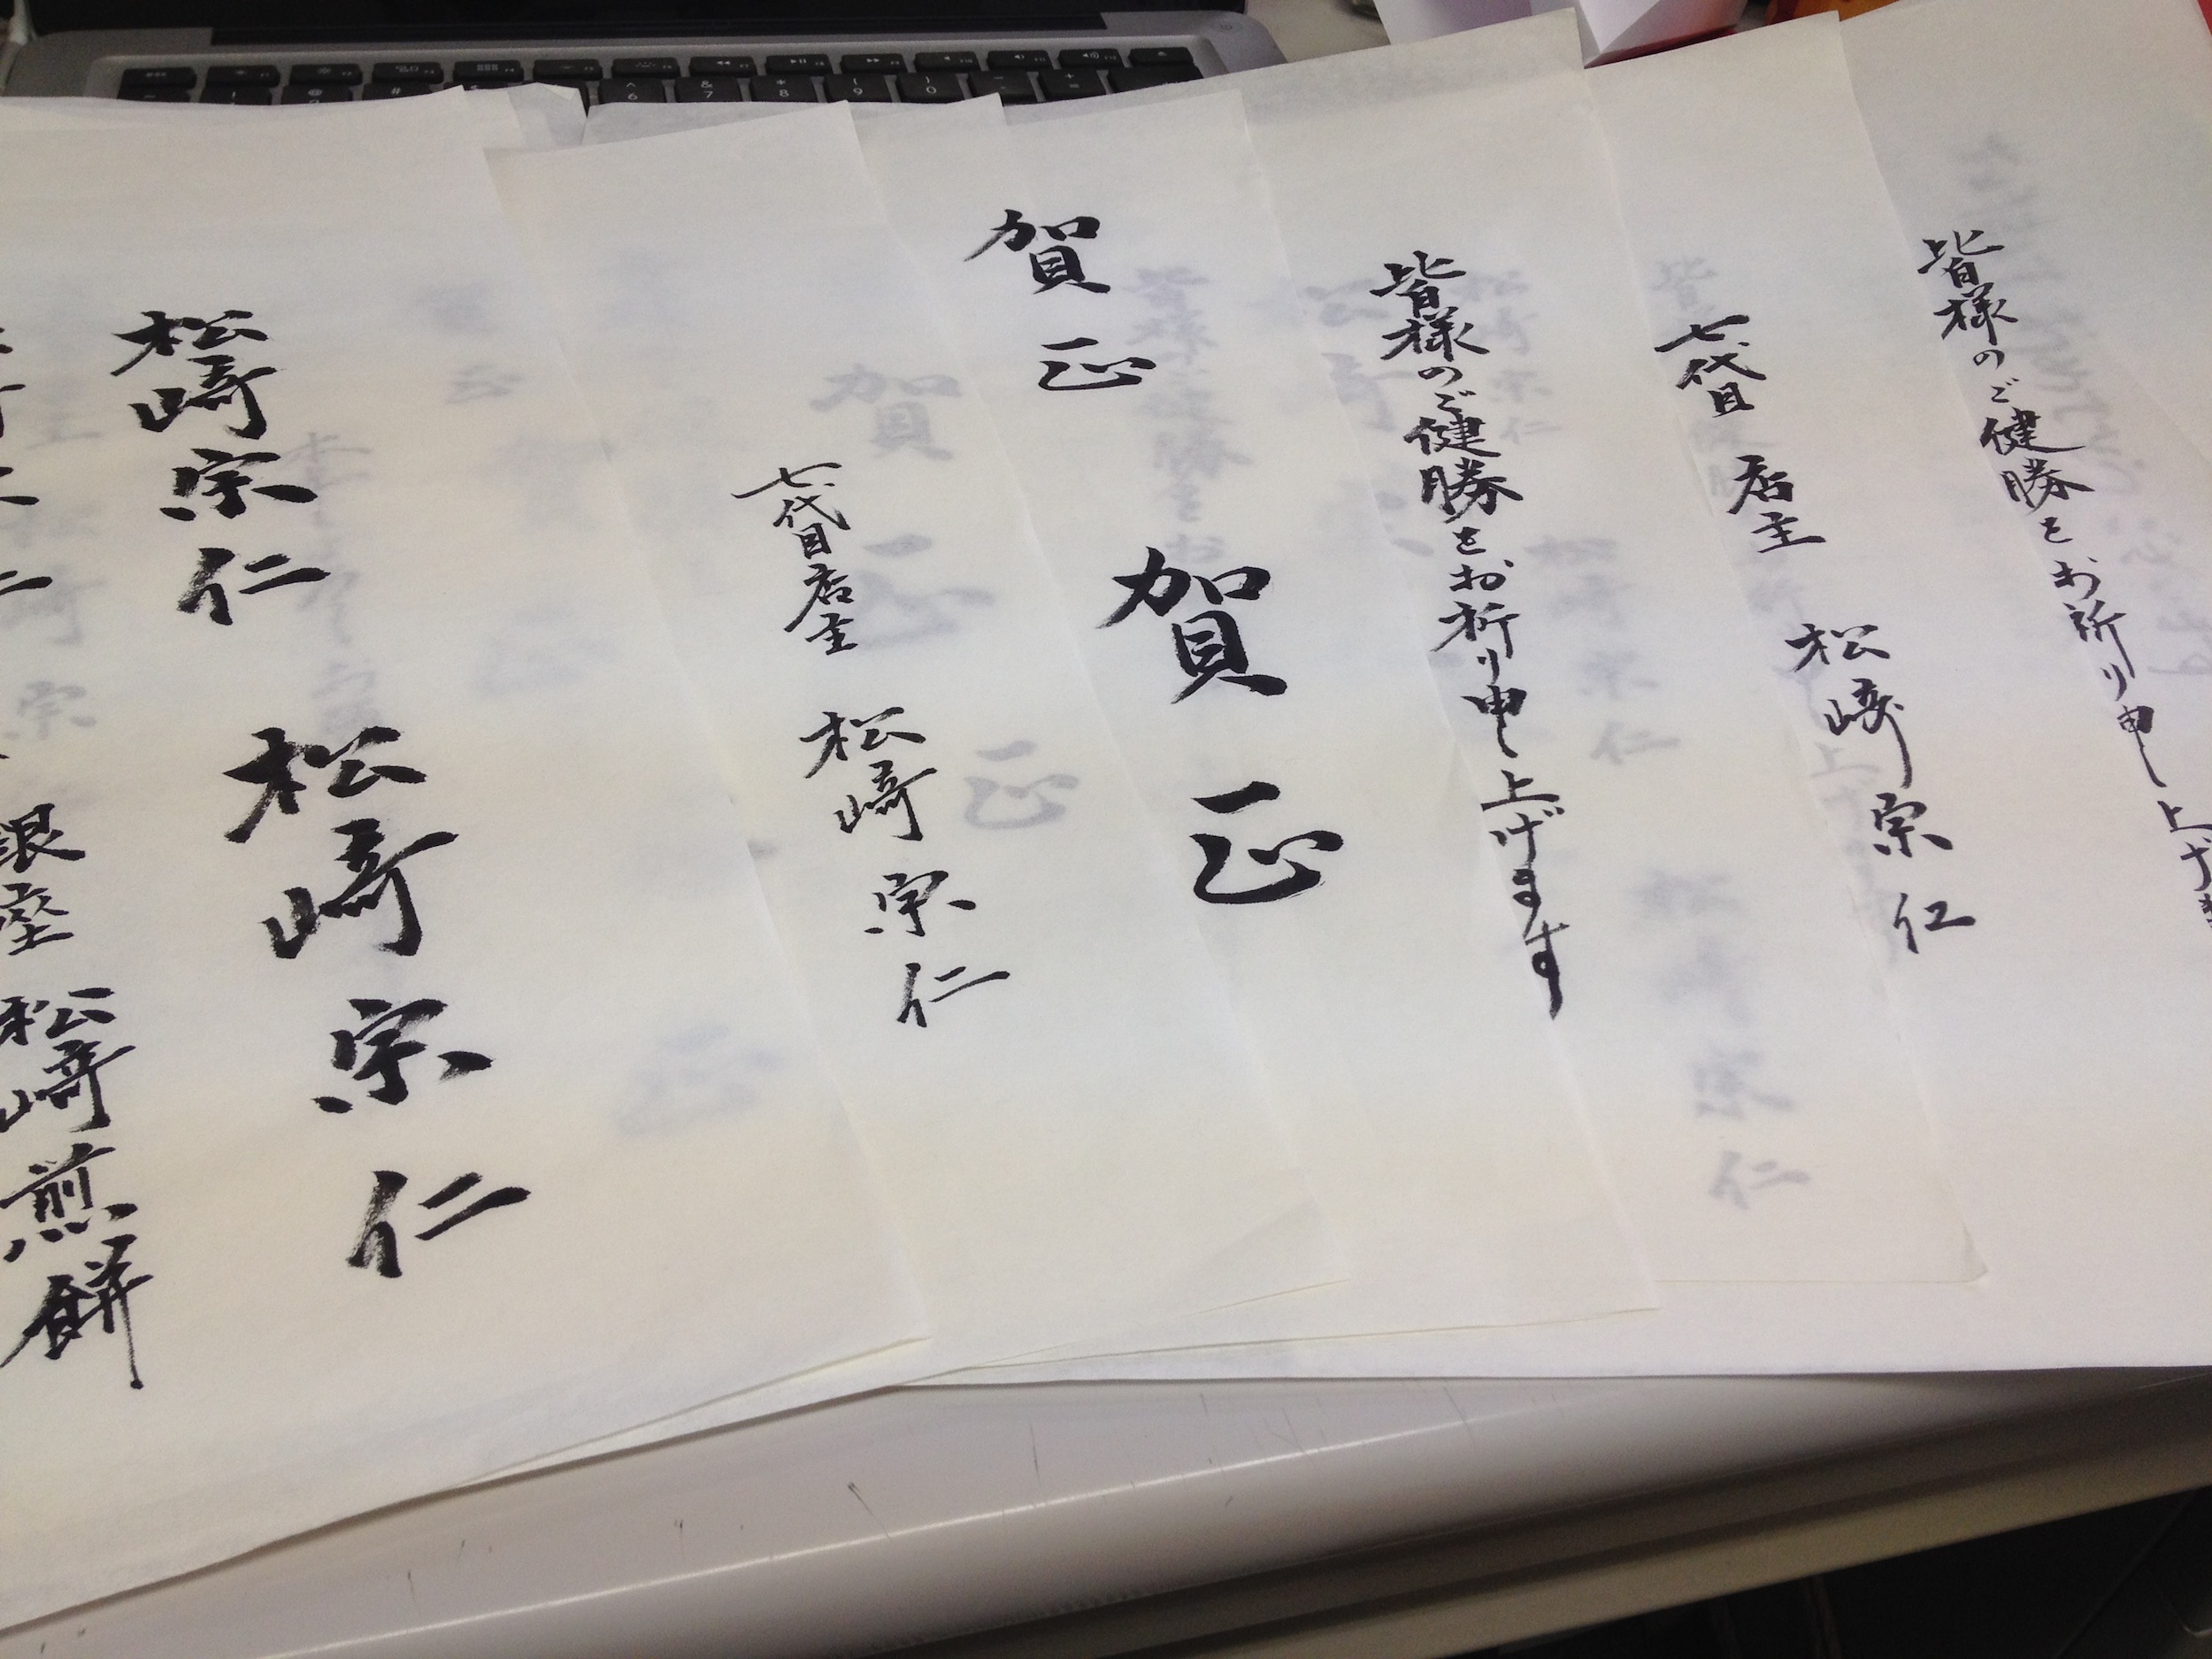 皆様のご健勝をお祈り申し上げ
七代目 店主 松﨑宗仁
皆様のご健勝をお祈り申し上げます
賀正
賀正
七代目店主 松﨑宗仁
松﨑宗仁
松﨑宗仁
銀座 松﨑煎餅